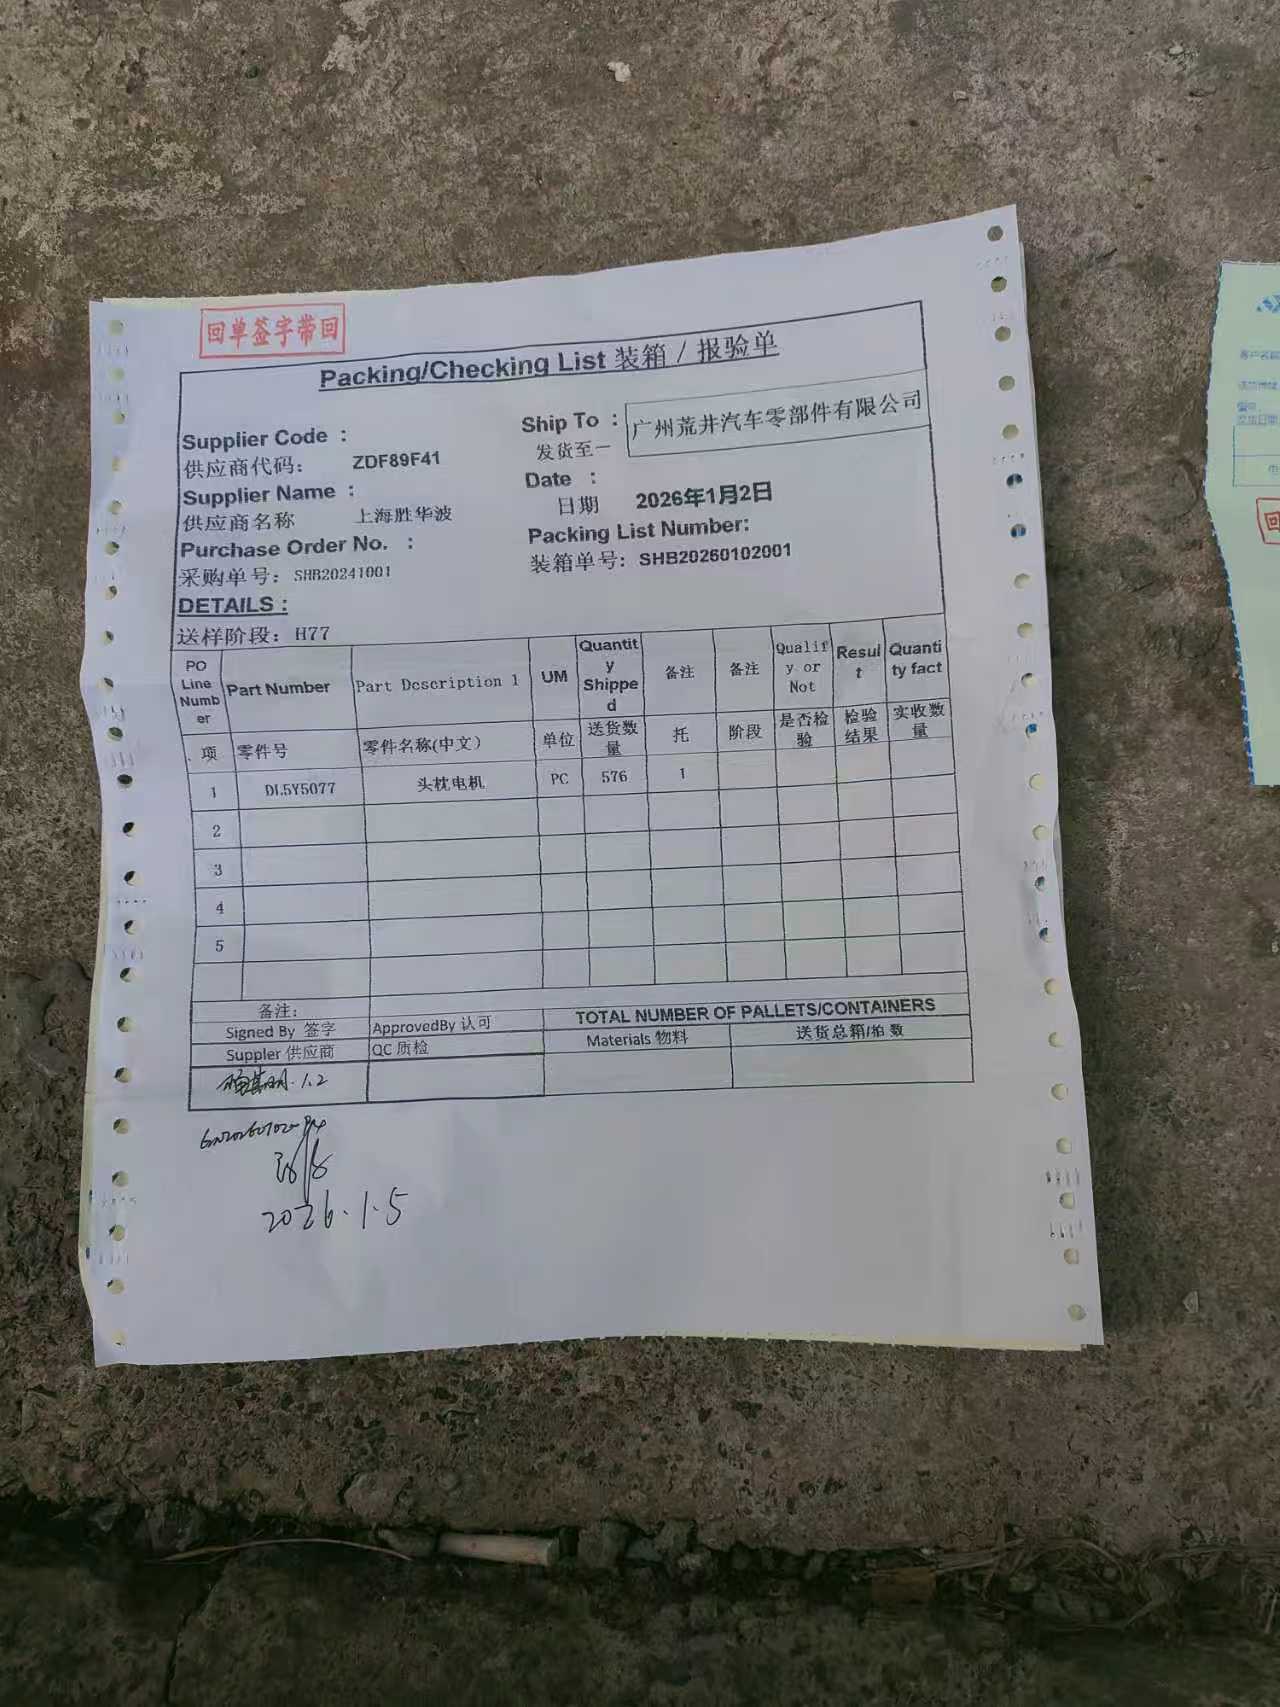 回单签字带回
Packing/Checking List 装箱 / 报验单
Supplier Code :
供应商代码: ZDF89F41
Ship To :
发货至一
广州荒井汽车零部件有限公司
Supplier Name :
供应商名称 上海胜华波
Date :
日期 2026年1月2日
Purchase Order No. :
采购单号: SHB20241001
Packing List Number:
装箱单号: SHB20260102001
DETAILS :
送样阶段: H77
PO Line Number Part Number Part Description 1 UM Quantity Shipped 备注 备注 Qualify or Not Result Quantity fact
项 零件号 零件名称(中文) 单位 送货数量 托 阶段 是否检验 检验结果 实收数量
1 DL5Y5077 头枕电机 PC 576 1
2
3
4
5
备注:
Signed By 签字 ApprovedBy 认可 TOTAL NUMBER OF PALLETS/CONTAINERS
Suppler 供应商 QC 质检 Materials 物料 送货总箱/箱数
1.2
2026.1.5
客户名称